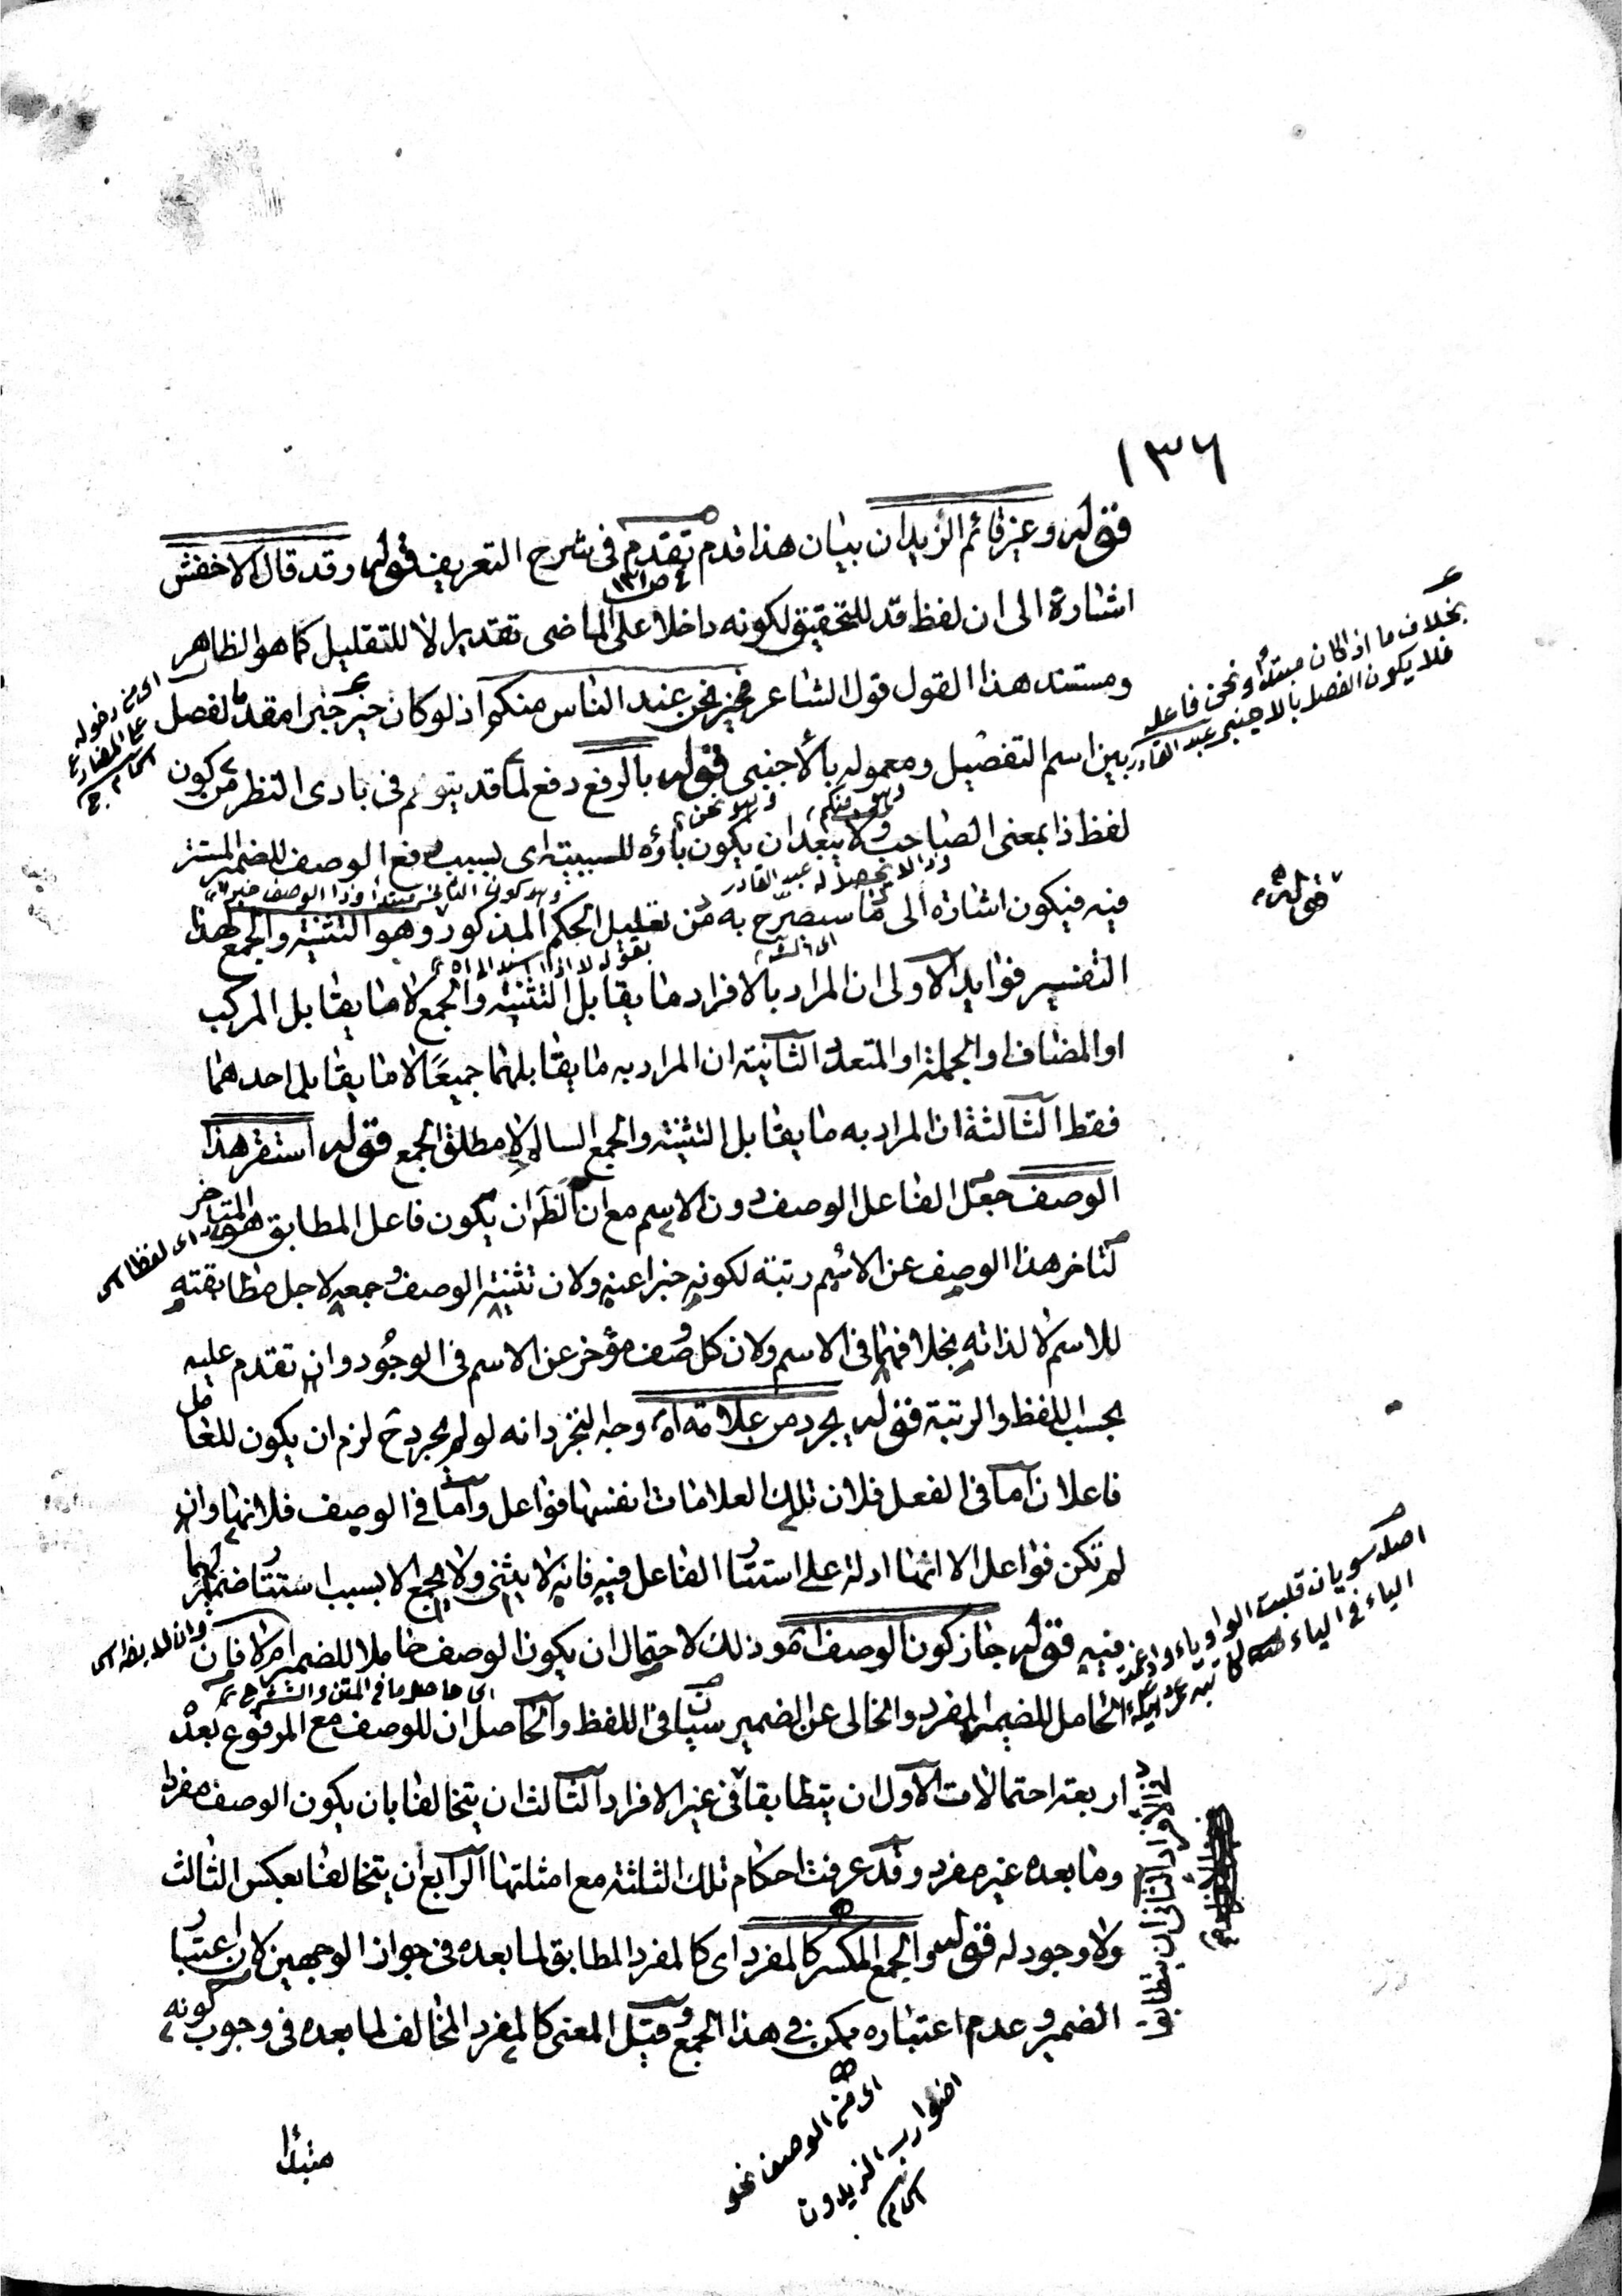 ١٣٦
قوله وغير قائم الزيدان بيان هذا قدم تقدم في شرح التعريف قوله وقد قال الاخفش
اشارة الى ان لفظ قد للتحقيق لكونه داخلا على الماضى تقديرا لا للتقليل كما هو الظاهر
ومستند هذا القول قول الشاعر فخير نحن عند الناس منكم اذ لو كان خير خبرا مقدما لفصل
بين اسم التفضيل ومعموله بالأجنبى قوله بالرفع دفع لما قد يتوهم فى بادى النظر من كون
لفظ ذا بمعنى الصاحب ولا يبعد ان يكون باؤه للسببية اى بسبب رفع الوصف للضمير المستتر
فيه فيكون اشارة الى ما سيصرّح به من تعليل الحكم المذكور وهو التثنية والجمع لهذا
التفسير فوايد الاولى ان المراد بالافراد ما يقابل التثنية والجمع لا ما يقابل المركب
او المضاف او الجملة او المتعدد الثانية ان المراد به ما يقابلهما جميعًا لا ما يقابل احدهما
فقط الثالثة ان المراد به ما يقابل التثنية والجمع السالم لا مطلق الجمع قوله استقر هذا
الوصف جعل الفاعل الوصف دون الاسم مع ان الظ ان يكون فاعل المطابق هو المتاخر
لتاخر هذا الوصف عن الاسم رتبة لكونه خبرا عنه ولان تثنية الوصف وجمعه لاجل مطابقته
للاسم لا لذاته بخلافهما فى الاسم ولان كل وصف مؤخر عن الاسم فى الوجود وان تقدم عليه
بحسب اللفظ والرتبة قوله يجرد من علامة اه وجه التجرد انه لو لم يجرد ح لزم ان يكون للعامل
فاعلان اما فى الفعل فلان تلك العلامات انفسها فواعل واما فى الوصف فلانها وان
لم تكن فواعل الا انها ادلة على استتار الفاعل فيه فانه لا يثنى ولا يجمع الا بسبب استتار ضميرهما
فيه قوله جاز كون الوصف اه وذلك لاحتمال ان يكون الوصف حاملا للضمير ام لا فان
الحامل للضمير المفرد والخالى عن الضمير سيان فى اللفظ والحاصل ان للوصف مع المرفوع بعده
اربعة احتمالات الاول ان يتطابقا فى غير الافراد الثالث ان يتخالفا بان يكون الوصف مفردا
وما بعده غير مفرد وقد عرفت احكام تلك الثلثة مع امثلتها الرابع ان يتخالفا بعكس الثالث
ولا وجود له قوله والجمع المكسر كالمفرد اى كالمفرد المطابق لما بعده فى جواز الوجهين لان اعتبار
الضمير وعدم اعتباره ممكن فى هذا الجمع وقيل المعنى كالمفرد المخالف لما بعده فى وجوب كونه
مبتدأ
بخلاف ما اذا كان مبتدأ ونحن فاعله
فلا يكون الفصل بالاجنبى عبد القادر
قوله
اصله سويان قلبت الواو ياء وادغمت
الياء فى الياء
فى الافراد الثانى ان يتطابقا
اى من الوصف نحو
اضوارب الزيدون